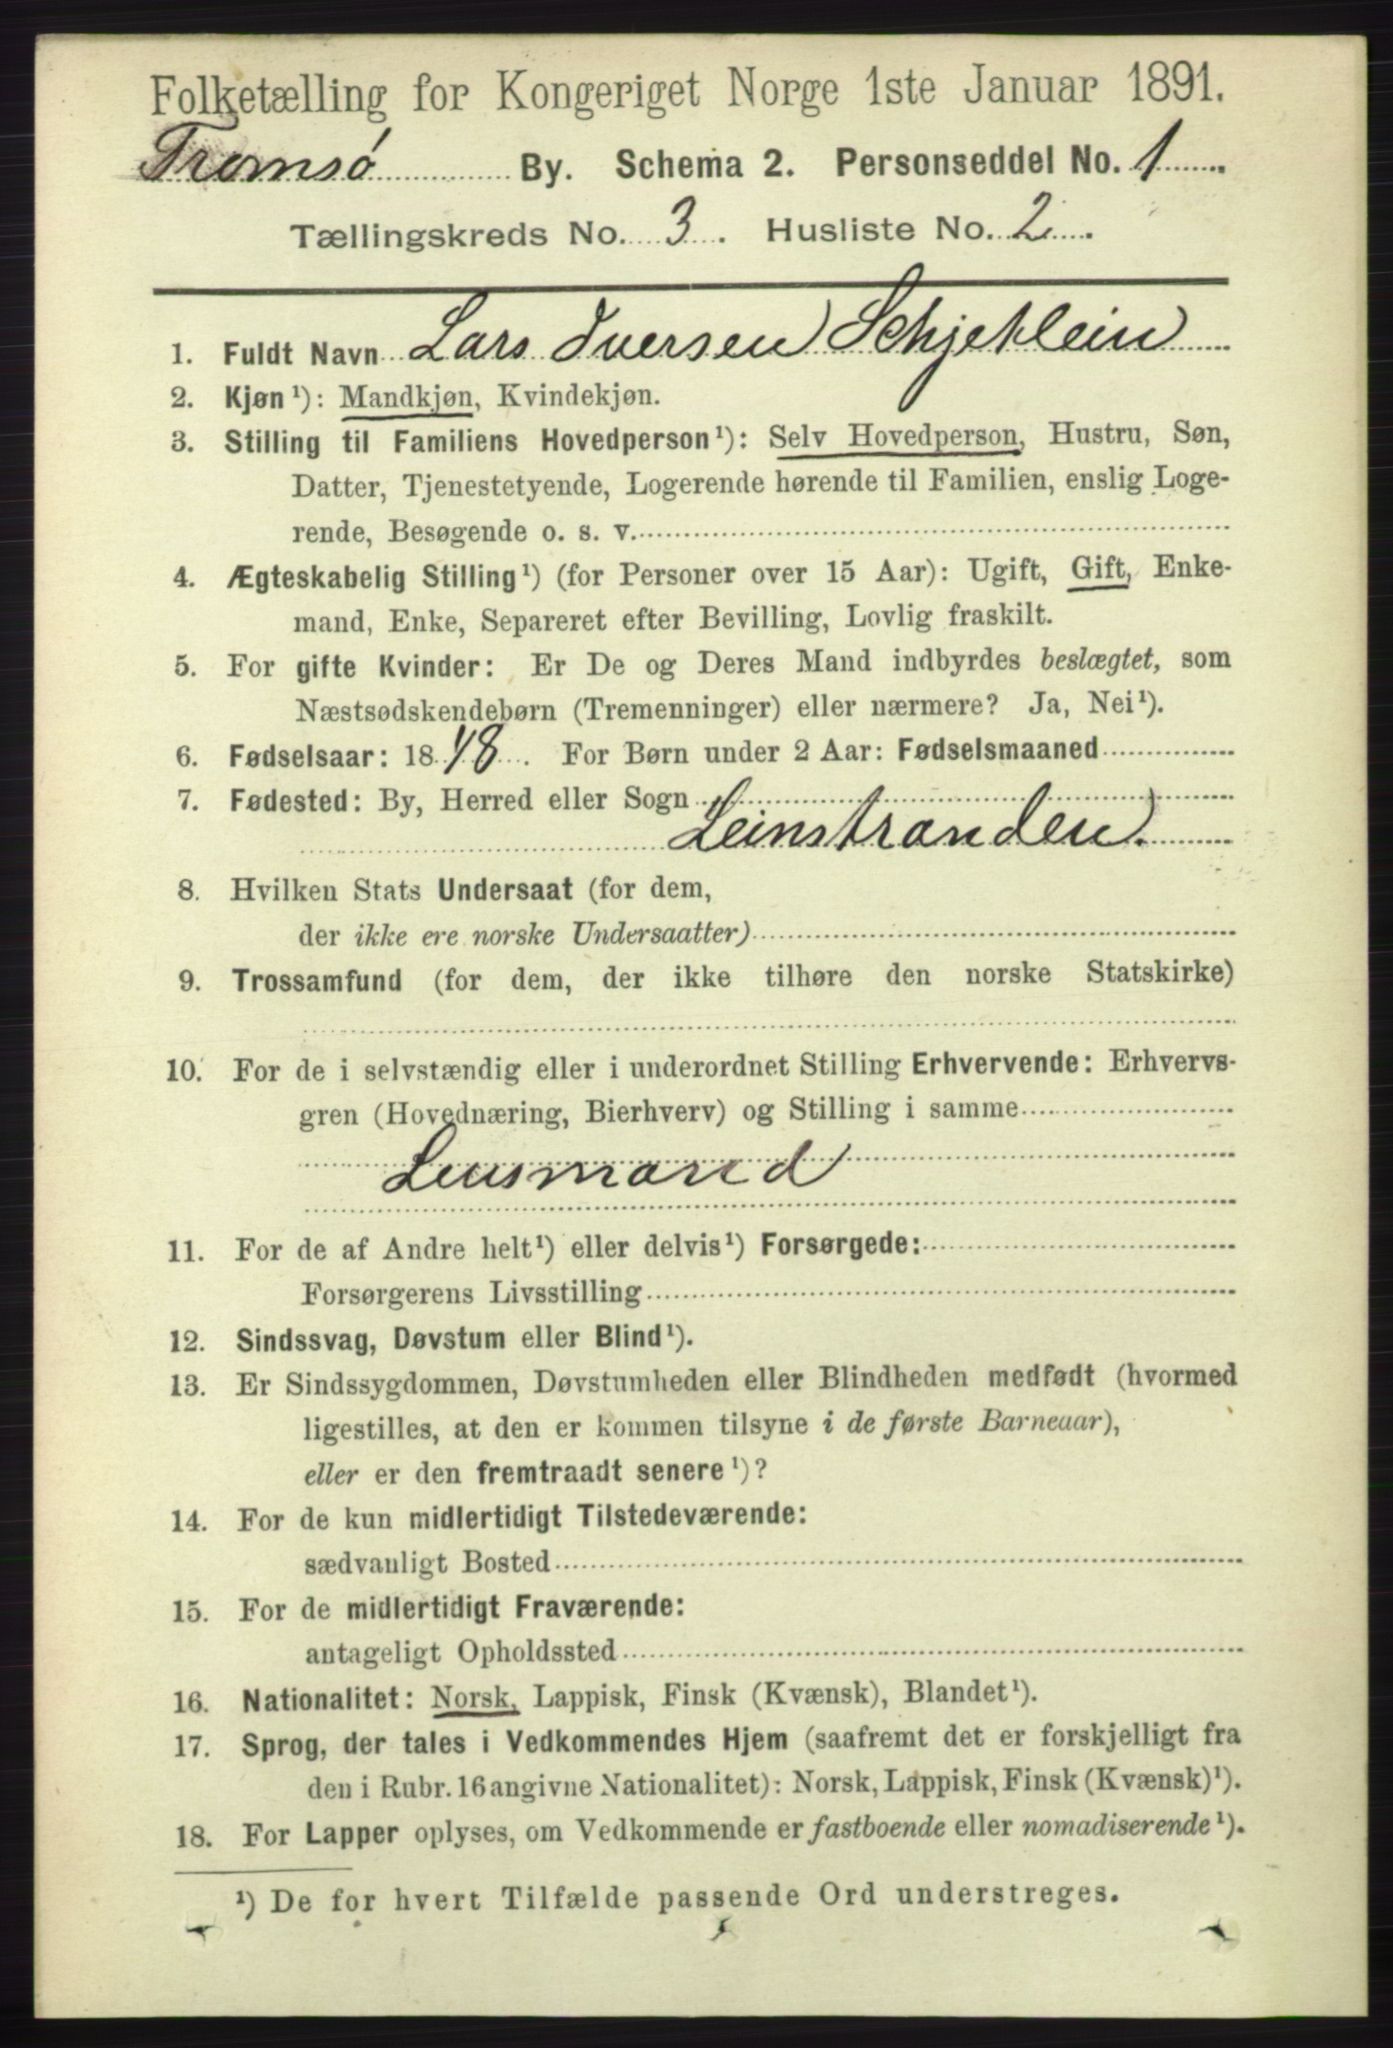 Folketælling for Kongeriget Norge 1ste Januar 1891.
Tromsø By. Schema 2. Personseddel No. 1
Tællingskreds No. 3. Husliste No. 2.
1. Fuldt Navn Lars Iversen Schjetlein
2. Kjøn¹): Mandkjøn, Kvindekjøn.
3. Stilling til Familiens Hovedperson¹): Selv Hovedperson, Hustru, Søn,
Datter, Tjenestetyende, Logerende hørende til Familien, enslig Loge-
rende, Besøgende o. s. v.
4. Ægteskabelig Stilling¹) (for Personer over 15 Aar): Ugift, Gift, Enke-
mand, Enke, Separeret efter Bevilling, Lovlig fraskilt.
5. For gifte Kvinder: Er De og Deres Mand indbyrdes beslægtet, som
Næstsødskendebørn (Tremenninger) eller nærmere? Ja, Nei¹).
6. Fødselsaar: 1848. For Børn under 2 Aar: Fødselsmaaned
7. Fødested: By, Herred eller Sogn
Leinstranden.
8. Hvilken Stats Undersaat (for dem,
der ikke ere norske Undersaatter)
9. Trossamfund (for dem, der ikke tilhøre den norske Statskirke)
10. For de i selvstændig eller i underordnet Stilling Erhvervende: Erhvervs-
gren (Hovednæring, Bierhverv) og Stilling i samme
Lensmand
11. For de af Andre helt¹) eller delvis¹) Forsørgede:
Forsørgerens Livsstilling
12. Sindssvag, Døvstum eller Blind¹).
13. Er Sindssygdommen, Døvstumheden eller Blindheden medfødt (hvormed
ligestilles, at den er kommen tilsyne i de første Barneaar),
eller er den fremtraadt senere¹)?
14. For de kun midlertidigt Tilstedeværende:
sædvanligt Bosted
15. For de midlertidigt Fraværende:
antageligt Opholdssted
16. Nationalitet: Norsk, Lappisk, Finsk (Kvænsk), Blandet¹).
17. Sprog, der tales i Vedkommendes Hjem (saafremt det er forskjelligt fra
den i Rubr. 16 angivne Nationalitet): Norsk, Lappisk, Finsk (Kvænsk)¹).
18. For Lapper oplyses, om Vedkommende er fastboende eller nomadiserende¹).
¹) De for hvert Tilfælde passende Ord understreges.